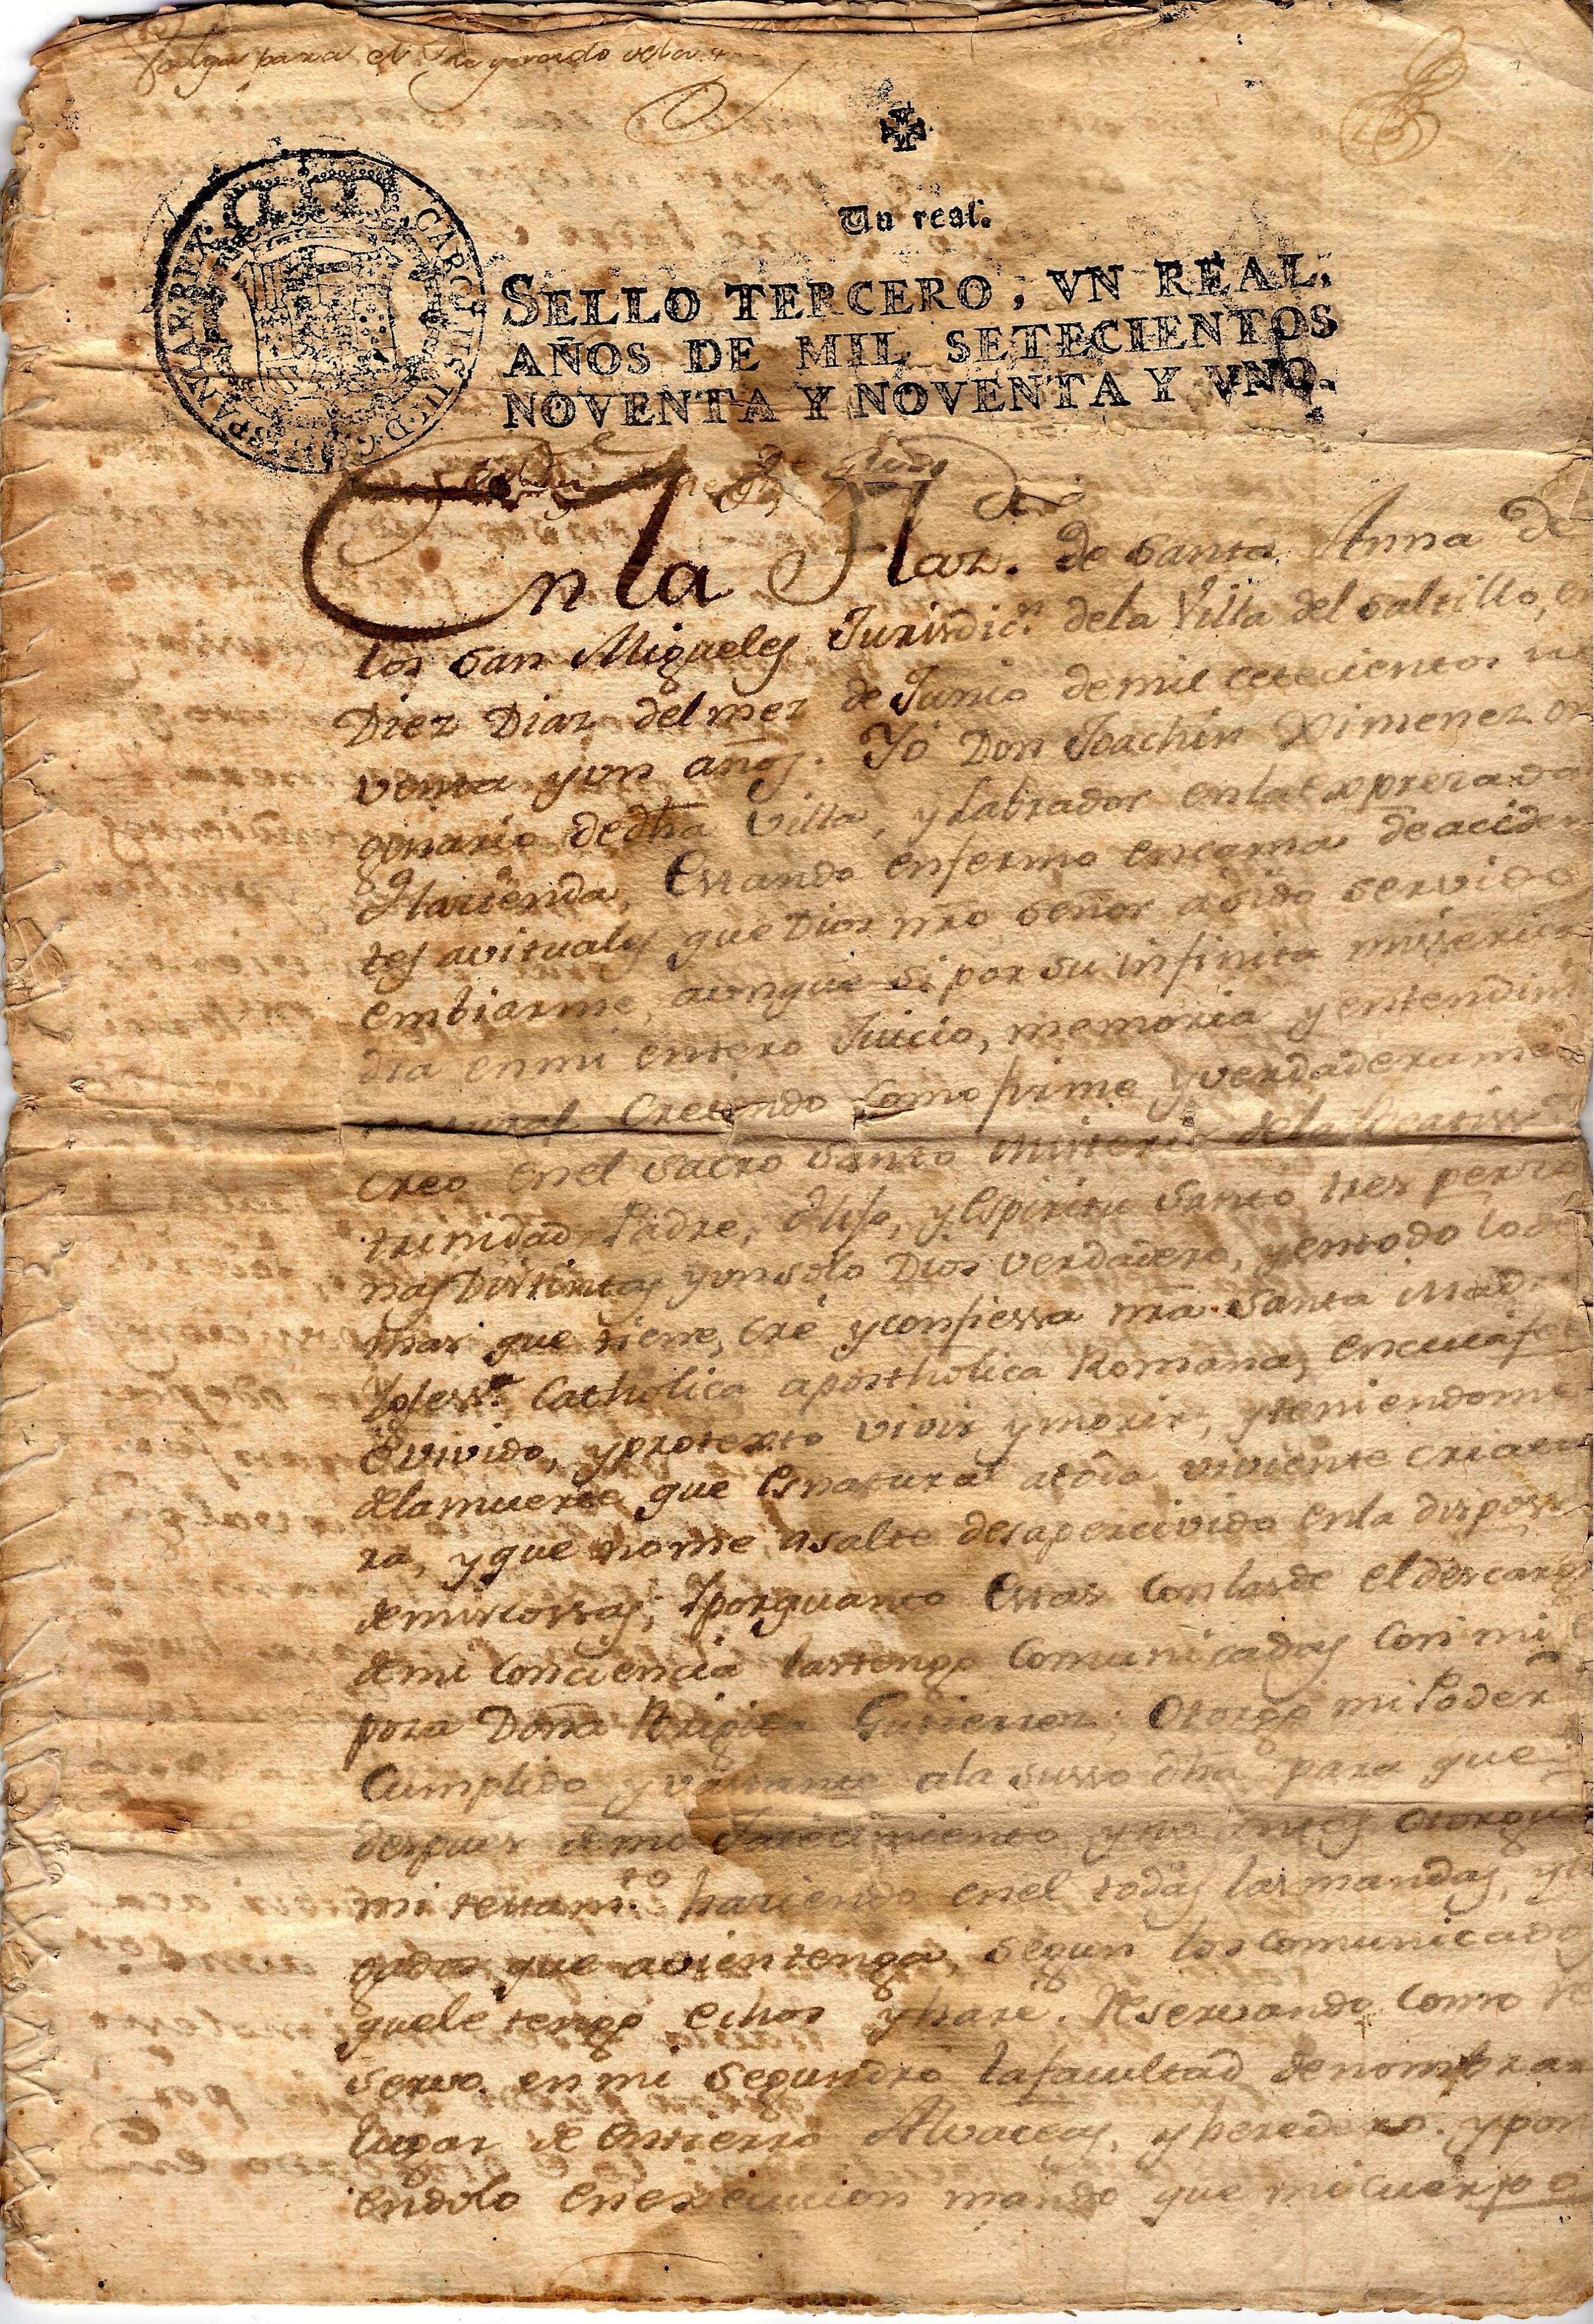 Valga para el
Un real.
SELLO TERCERO, VN REAL,
AÑOS DE MIL SETECIENTOS
NOVENTA Y NOVENTA Y VNO.
CAROLUS IV D G HISPANIAR REX
En la Haz. de Santa Anna de
los San Migueles Jurisdicn. dela Villa del Saltillo, en
Diez Diaz del mez de Junio de mil cetecientos no
venta y vn años. Yo Don Joachin Ximenez ori
ginario dedha Villa, y Labrador enlaexpresada
Hacienda, Estando enfermo encama deaciden
tes avituales que Dios nro Señor asido servido
embiarme, aunque si por su infinita misericor
dia enmi entero Juicio, memoria y entendimi
Creiendo como firme y verdaderame
creo enel Sacro Santo misterio dela Beatissa
trinidad Padre, Hijo, y Espiritu Santo tres perso
nas Distintas y vnsolo Dios verdadero, y entodo lode
mas que tiene, cré y confiessa nra Santa Madre
Yglessa Catholica apostholica Romana, encuiafee
é vivido, y protexto vivir y morir, y teniendome
delamuerte que esnatural atoda viviente criatu
ra, y que nome asalte desapercivido enla disposs
demiscossas; Yporquanto Estas conlasde eldescargo
demi conciencia lastengo comunicadas con mi es
posa Doña Brigita Gutierrez; Otorgo mi Poder
Cumplido y vastante ala susso dha para que
despues demi fallecimiento y no antes otorgue
mi testamto. haciendo enel todas lasmandas, y le
gados que avientenga, segun loscomunicados
quele tengo echos y haré. Reservando como re
servo en mi Segundro lafacultad denombrar
lugar de entierro Alvaceas, y heredero. y poni
endolo enexecucion mando que micuerpo